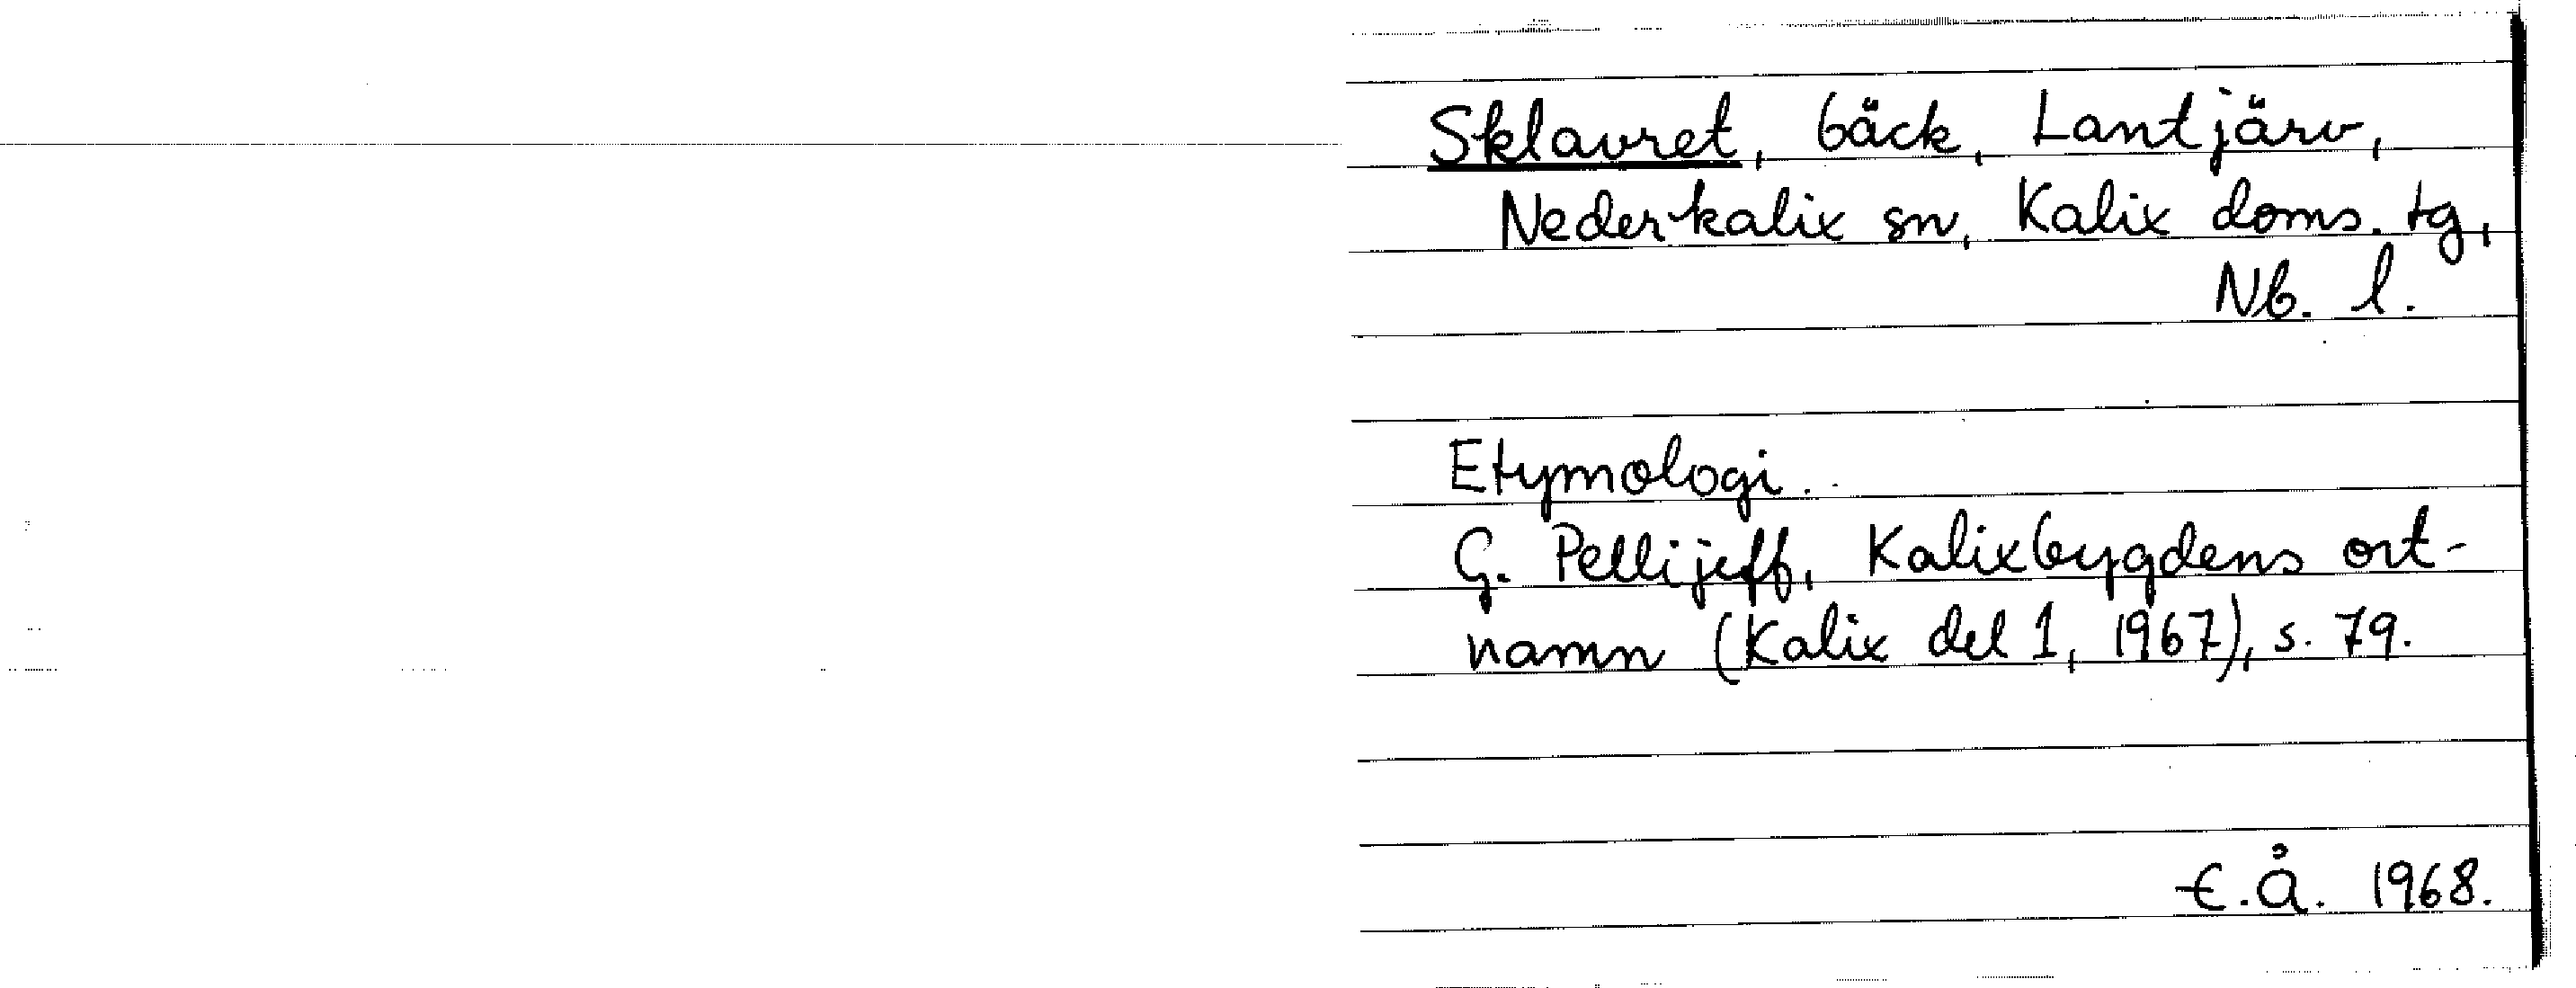 Sklavret, bäck, Lantjärv,
Nederkalix sn, Kalix doms. tg,
Nb. l.
Etymologi.
G. Pellijeff, Kalixbygdens ort-
namn (Kalix del 1, 1967), s. 79.
E.Å. 1968.